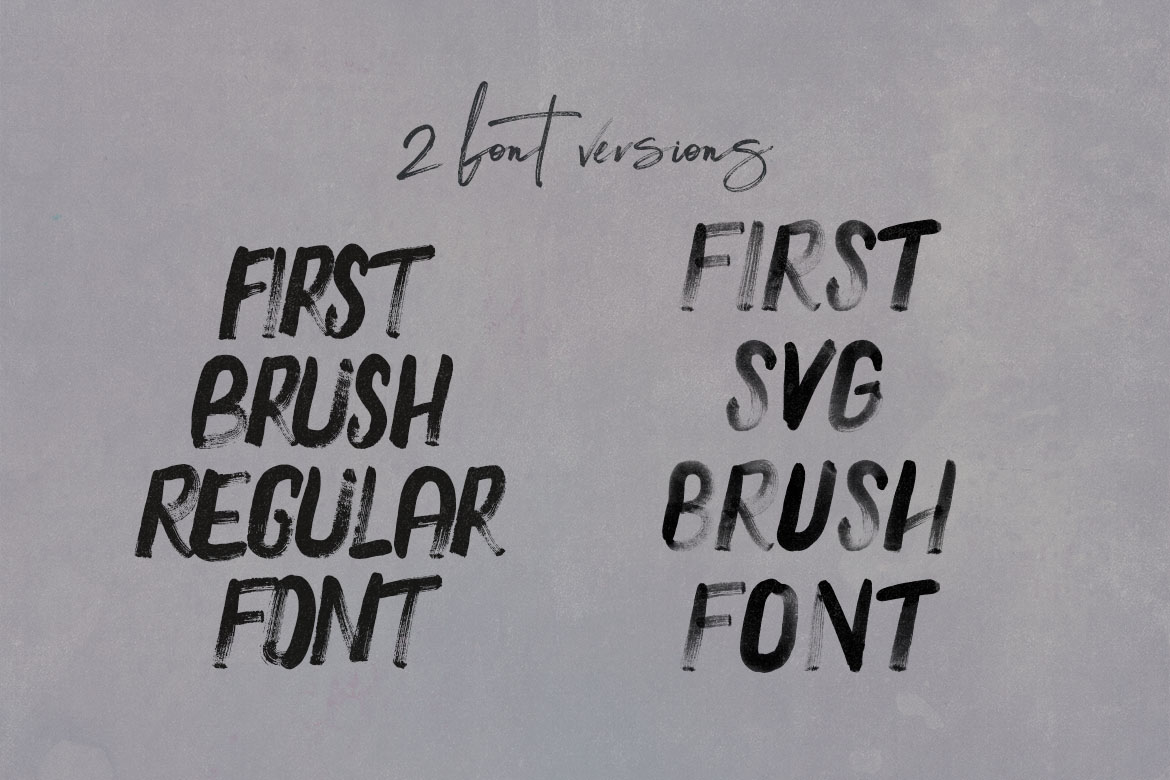 2 font versions
FIRST
BRUSH
REGULAR
FONT
FIRST
SVG
BRUSH
FONT